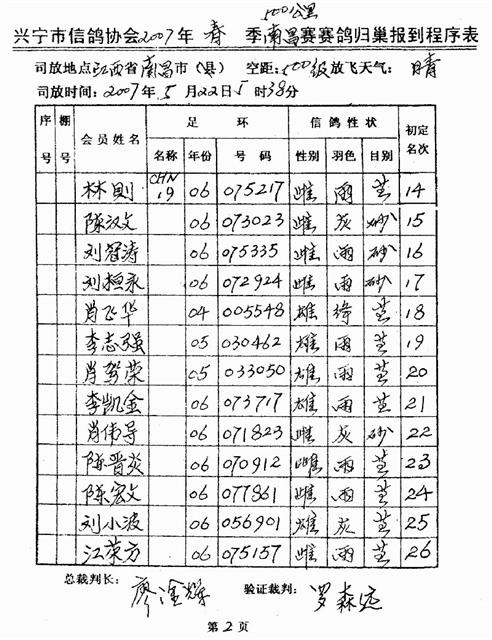 500公里
兴宁市信鸽协会2007年 春 季南昌赛赛鸽归巢报到程序表
司放地点江西省南昌市（县） 空距：500级放飞天气：晴
司放时间：2007年5月22日5时38分
序号 棚号 会员姓名 足环 信鸽性状 初定名次
名称 年份 号码 性别 羽色 目别
林则 CHN 19 06 075217 雌 雨 黄 14
陈汉文 06 073023 雌 灰 砂 15
刘冠涛 06 075335 雌 雨 砂 16
刘桓永 06 072924 雌 雨 砂 17
肖飞华 04 005548 雄 绛 黄 18
李志强 05 030462 雄 雨 黄 19
肖驾荣 05 033050 雄 雨 黄 20
李凯金 06 073717 雄 雨 黄 21
肖伟导 06 071823 雌 灰 砂 22
陈晋炎 06 070912 雌 雨 黄 23
陈宏文 06 077861 雌 雨 黄 24
刘小波 06 056901 雄 灰 黄 25
江荣方 06 075157 雌 雨 黄 26
总裁判长： 廖淦辉 验证裁判： 罗森远
第2页